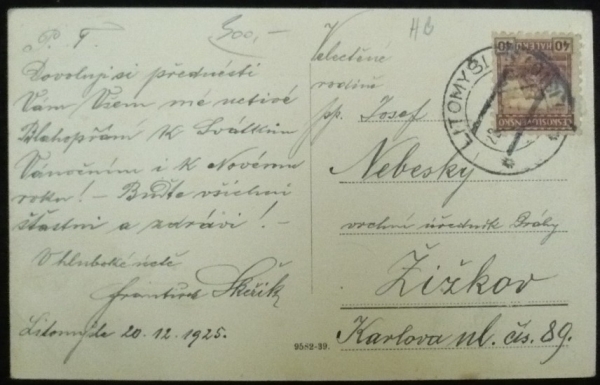 P. T.
300,-
HB
Dovoluji si přednésti
Vám Všem mé uctivé
Blahopřání k Svátkům
Vánočním i k Novému
roku! - Buďte všichni
šťastni a zdrávi! -
V hluboké úctě
František Skřík
Litomyšl 20.12.1925.
Velectěné
rodině
pp. Josef
Nebeský
vrchní úředník Dráhy
Žižkov
Karlova ul. čís. 89.
9582-39.
LITOMYŠL
40 40
HALÉŘŮ
ČESKOSLOVENSKO